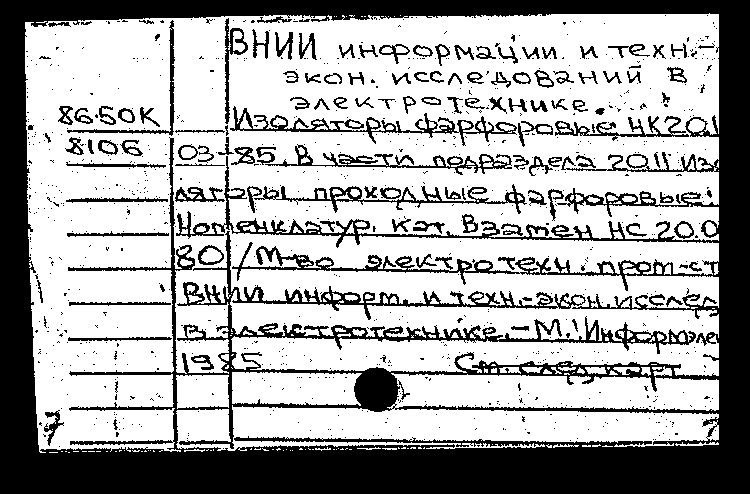 ВНИИ информации и техн.-
экон. исследований в
электротехнике.
86-50К Изоляторы фарфоровые НК20.1
8106 03-85. В части подраздела 20.11 Изо
ляторы проходные фарфоровые:
Номенклатур. кат. Взамен НС 20.0
80 / М-во электротехн. пром-ст
ВНИИ информ. и техн.-экон. исслед
в электротехнике.-М.: Информэле
1985 См. след. карт
7 7